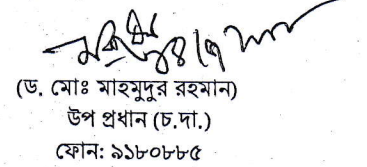 (ড. মোঃ মাহমুদুর রহমান)
উপ প্রধান (চ.দা.)
ফোন: ৯১৮০৮৮৫